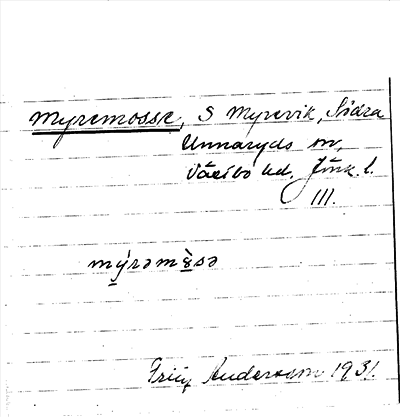 Myremosse, S Myrevik, Södra
Unnaryds sn,
Västbo hd, Jönk. l.
III.
mýrəmòsə
Andersson 1931.